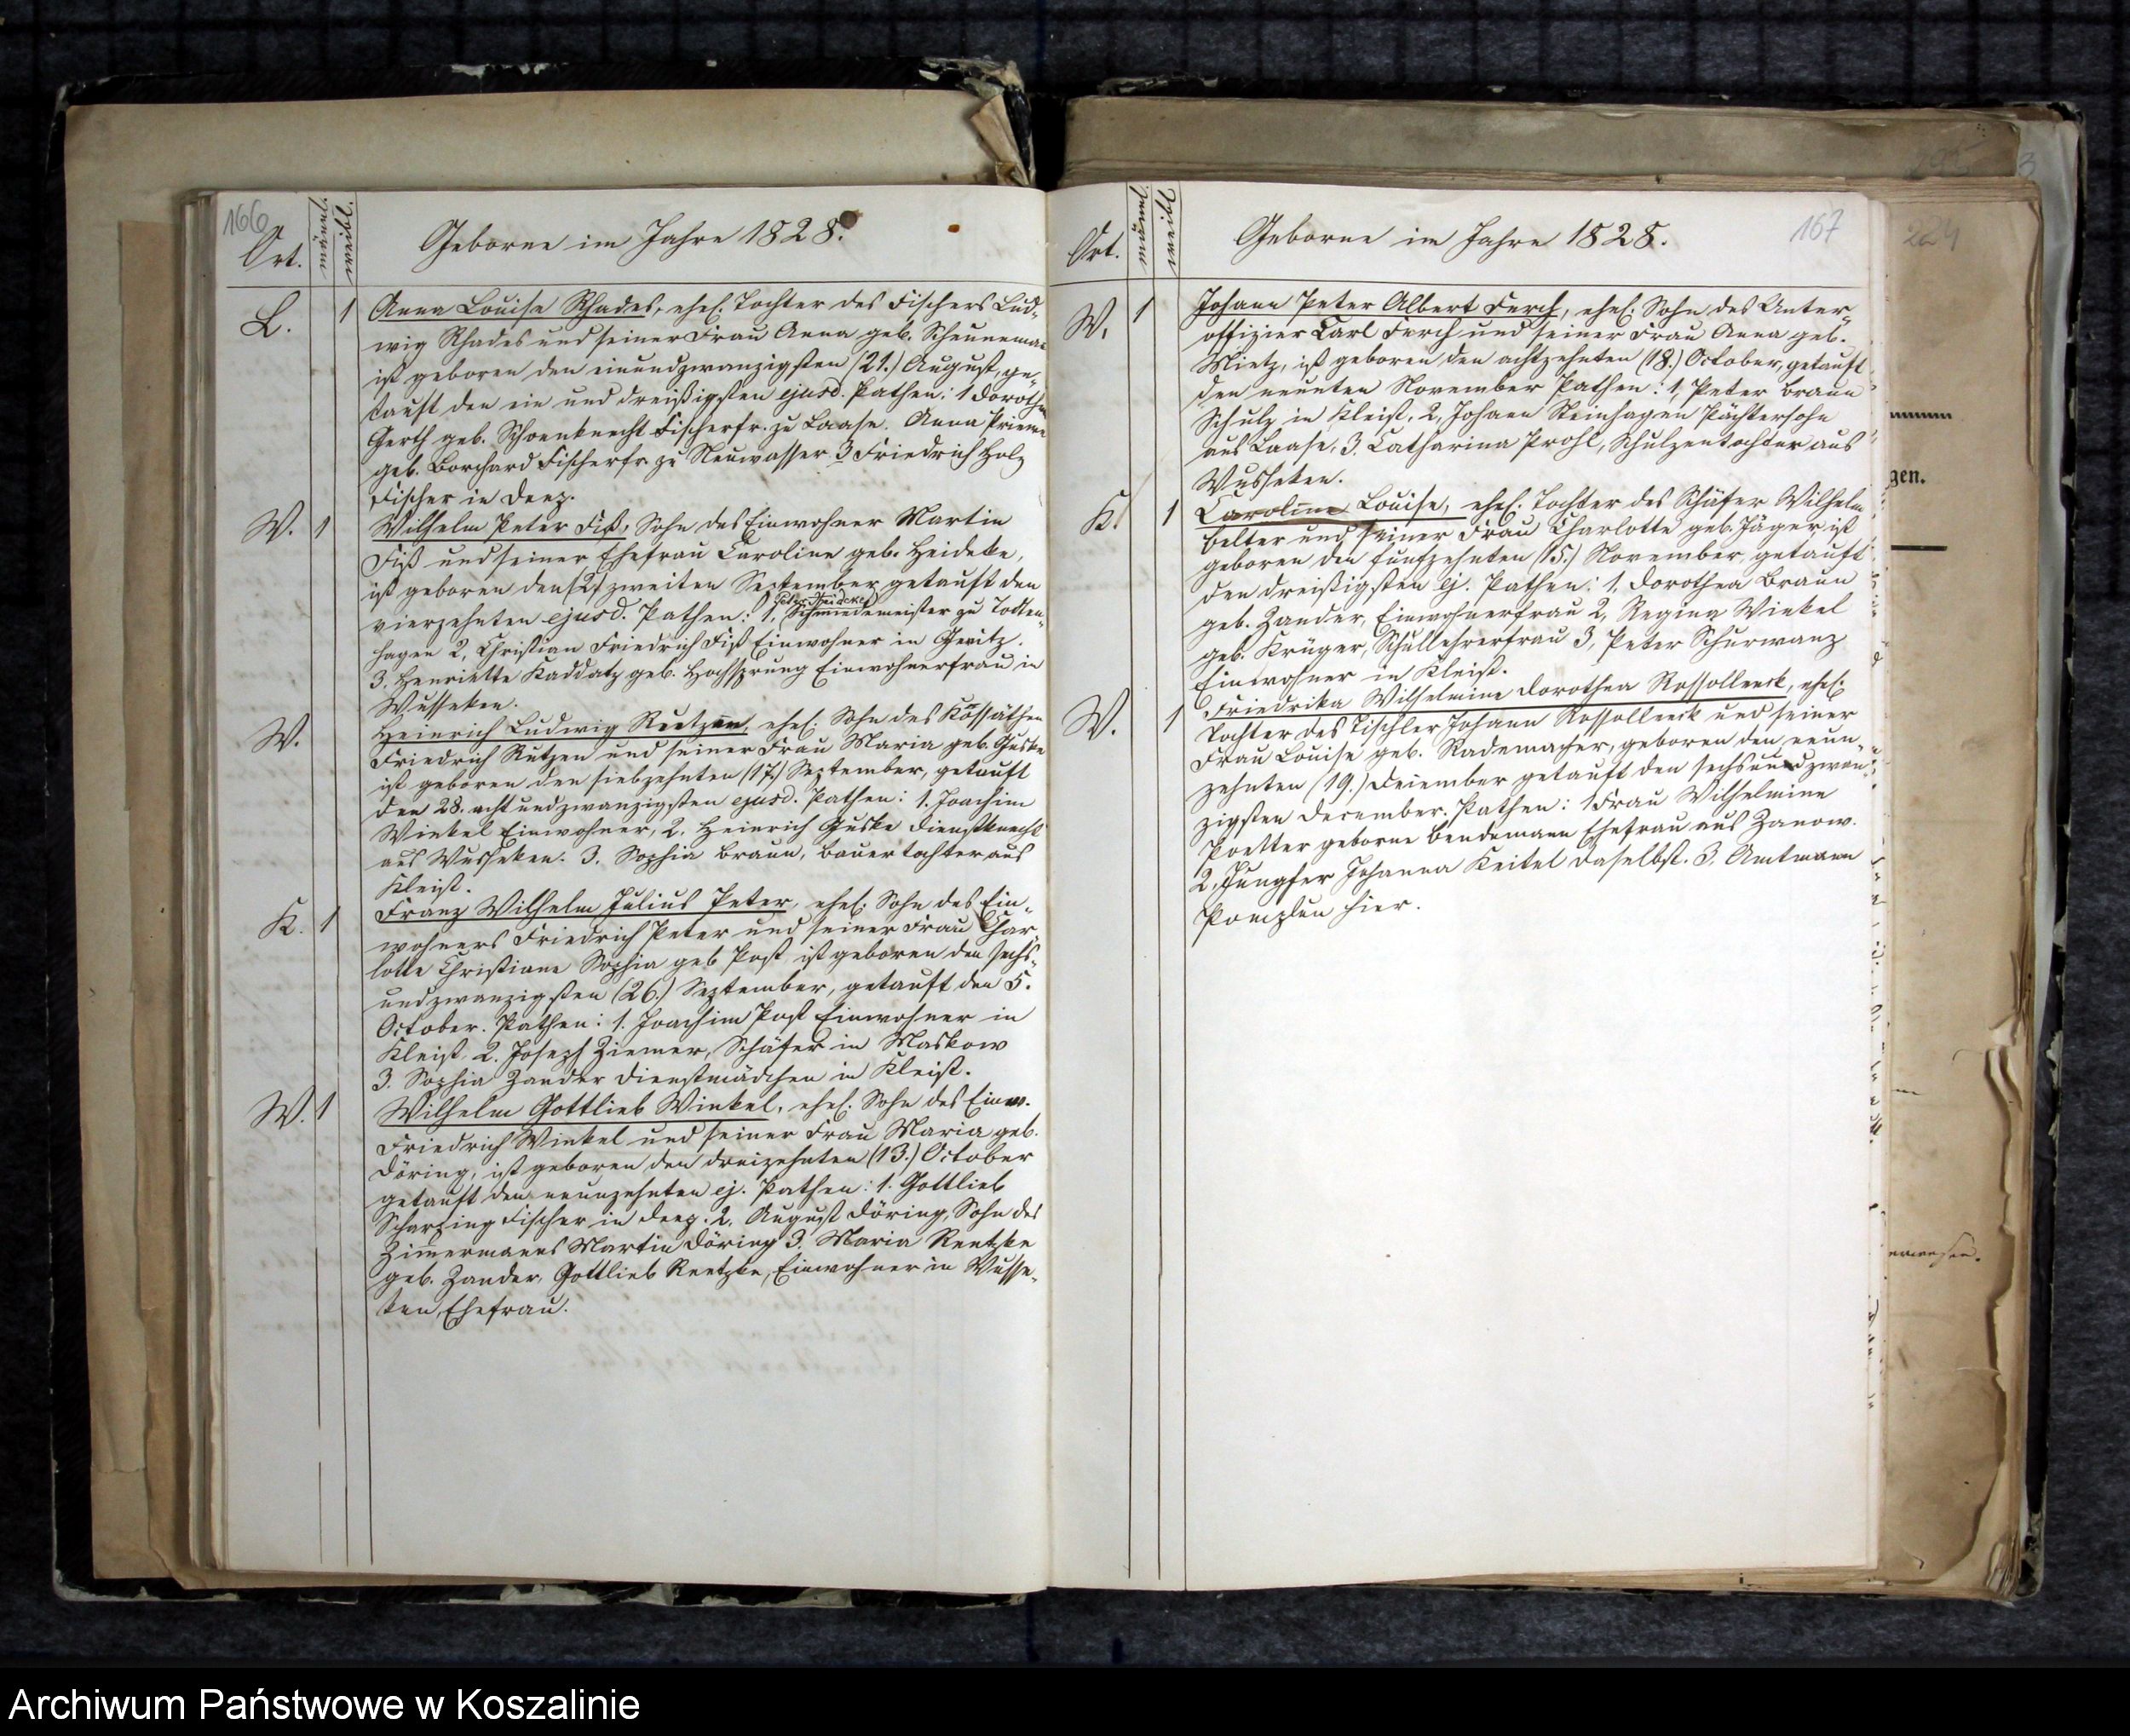 166
Ort.
männl.
weibl.
Geborne im Jahre 1828.
L. 1 Anna Louise Rhades, ehel. Tochter des Fischers Lud-
wig Rhades und seiner Frau Anna geb. Scheuneman
ist geboren den einundzwanzigsten (21.) August, ge-
tauft den ein und dreißigsten ejusd. Pathen: 1 Doroth
Gerth geb. Schoenknecht Fischerfr. zu Laase. Anna Prieme
geb. Borchard Fischerfr. zu Neuwasser 3 Friedrich Holz
Fischer in Deep.
W. 1 Wilhelm Peter Fiß, Sohn des Einwohner Martin
Fiß und seiner Ehefrau Caroline geb. Heideke,
ist geboren den (2) zweiten September getauft den
Peter Heideke
vierzehnten ejusd. Pathen: 1, Schmiedemeister zu Todten-
hagen 2, Christian Friedrich Fiß Einwohner in Geritz.
3. Henriette Kaddatz geb. Hochsprung Einwohnerfrau in
Wusseken.
W. Heinrich Ludwig Rutzen, ehel. Sohn des Kossäthen
Friedrich Rutzen und seiner Frau Maria geb. Guske
ist geboren den siebzehnten (17.) September, getauft
den 28. acht und zwanzigsten ejusd. Pathen: 1. Joachim
Winkel Einwohner, 2. Heinrich Guske Dienstknecht
aus Wusseken. 3. Sophia Braun, Bauertochter aus
Kleist.
K. 1 Franz Wilhelm Julius Peter, ehel. Sohn des Ein-
wohners Friedrich Peter und seiner Frau Char-
lotte Christiane Sophia geb Post ist geboren den sechs-
undzwanzigsten (26.) September, getauft den 5.
October. Pathen: 1. Joachim Post Einwohner in
Kleist 2. Joseph Ziemer, Schäfer in Maskow
3. Sophia Zander Dienstmädchen in Kleist.
W. 1 Wilhelm Gottlieb Winkel, ehel. Sohn des Einw.
Friedrich Winkel und seiner Frau Maria geb.
Döring, ist geboren den dreizehnten (13.) October
getauft den neunzehnten ej. Pathen: 1. Gottlieb
Scharping Fischer in Deep. 2. August Döring, Sohn des
Zimmermanns Martin Döring 3. Maria Rentzke
geb. Zander, Gottlieb Rentzke, Einwohner in Wusse-
ken Ehefrau.
167
Ort.
männl.
weibl.
Geborne im Jahre 1828.
W. 1 Johann Peter Albert Ferch, ehel. Sohn des Unter-
offizier Carl Ferch und seiner Frau Anna geb.
Mietz, ist geboren den achtzehnten (18.) October, getauft
den neunten November Pathen: 1, Peter Braun
Schulz in Kleist, 2, Johann Steinhagen Pächtersohn
aus Laase, 3. Catharina Prohl, Schulzentochter aus
Wusseken.
K. 1 Caroline Louise, ehel. Tochter des Schäfer Wilhelm
Belter und seiner Frau Charlotte geb. Jäger, ist
geboren den funfzehnten (15.) November, getauft
den dreißigsten ej. Pathen: 1, Dorothea Braun
geb. Zander, Einwohnerfrau 2, Regina Winkel
geb. Krüger, Schullehrerfrau 3, Peter Schurwanz
Einwohner in Kleist.
W. 1 Friedrika Wilhelmine Dorothea Rossolleck, ehel.
Tochter des Tischler Johann Rossolleck und seiner
Frau Louise geb. Rademacher, geboren den neun-
zehnten (19.) Dezember getauft den sechsundzwan-
zigsten December. Pathen: 1 Frau Wilhelmine
Poetter geborne Bendemann Ehefrau aus Zanow.
2. Jungfer Johanna Keitel daselbst. 3. Amtmann
Pomplun hier.
224
gen.
Archiwum Państwowe w Koszalinie